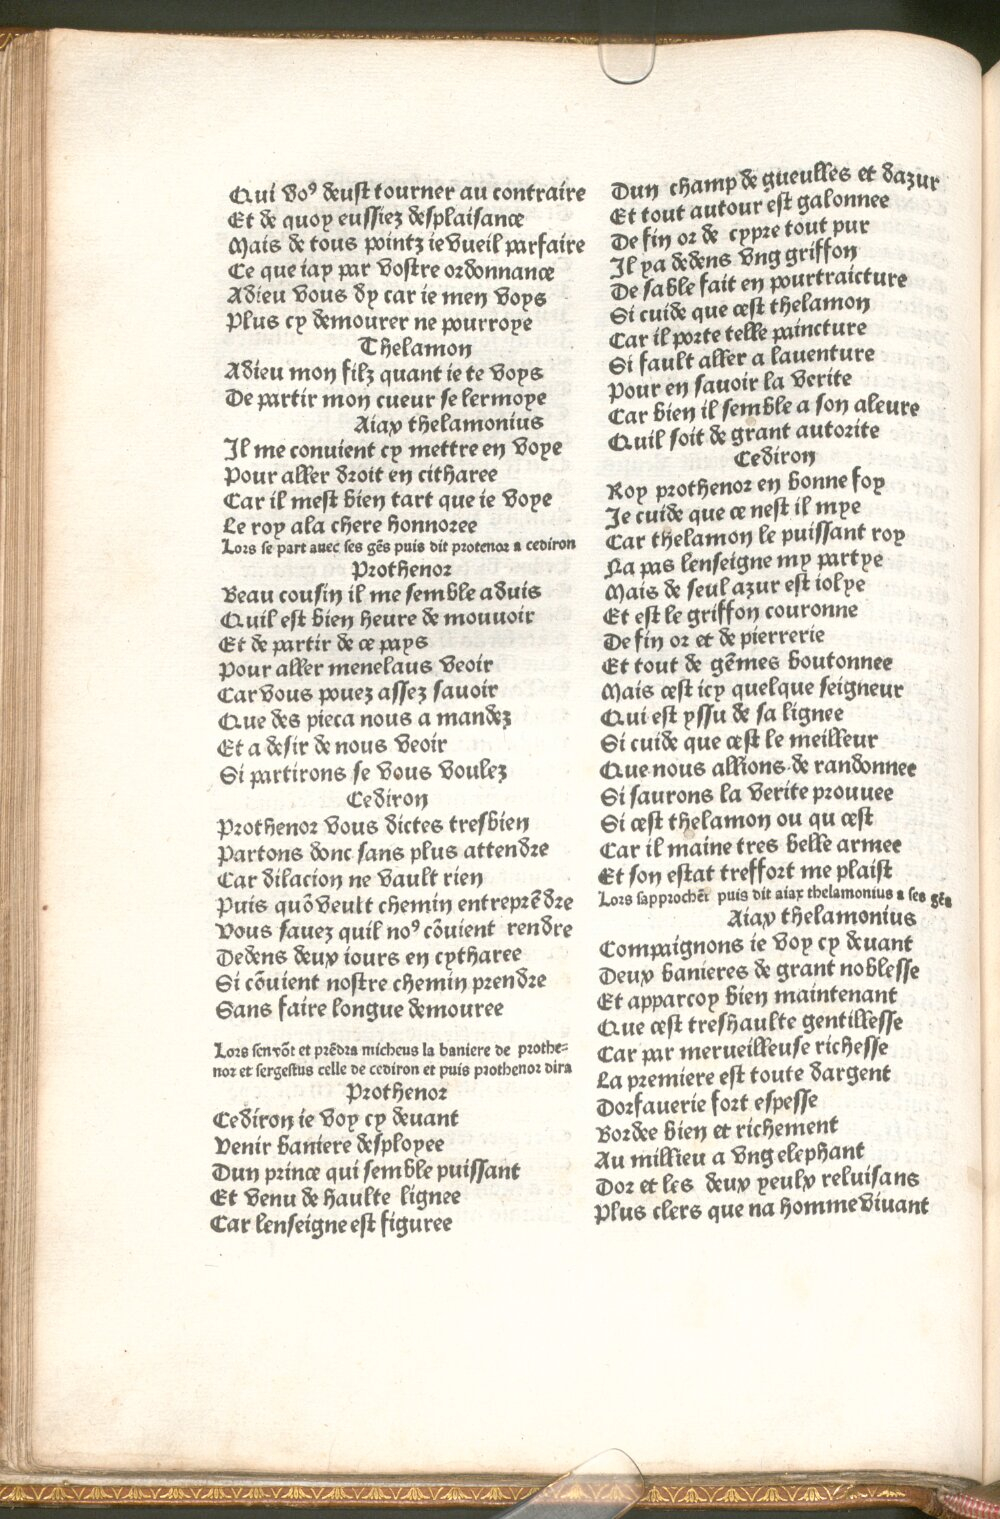 Qui vo⁹ deust tourner au contraire
Et de quoy eussiez desplaisance
Mais de tous pointz ie vueil parfaire
Ce que iay par vostre ordonnance
Adieu vous dy car ie men voys
Plus cy demourer ne pourroye
Thelamon
Adieu mon filz quant ie te voys
De partir mon cueur se lermoye
Aiax thelamonius
Il me conuient cy mettre en voye
Pour aller droit en citharee
Car il mest bien tart que ie voye
Le roy a la chere honnoree
Lors se part auec ses gẽs puis dit protenor a cediron
Prothenor
Beau cousin il me semble aduis
Quil est bien heure de mouuoir
Et de partir de ce pays
Pour aller menelaus veoir
Car vous pouez assez sauoir
Que des pieca nous a mandez
Et a desir de nous veoir
Si partirons se vous voulez
Cediron
Prothenor vous dictes tresbien
Partons donc sans plus attendre
Car dilacion ne vault rien
Puis quõ veult chemin entreprẽdre
Vous sauez quil no⁹ cõuient rendre
Dedens deux iours en cytharee
Si cõuient nostre chemin prendre
Sans faire longue demouree
Lors sen võt et prẽdra micheus la baniere de prothe=
nor et sergestus celle de cediron et puis prothenor dira
Prothenor
Cediron ie voy cy deuant
Venir baniere desployee
Dun prince qui semble puissant
Et venu de haulte lignee
Car lenseigne est figuree
Dun champ de gueulles et dazur
Et tout autour est galonnee
De fin or de cypre tout pur
Il ya dedens vng griffon
De sable fait en pourtraicture
Si cuide que cest thelamon
Car il porte telle paincture
Si fault aller a lauenture
Pour en sauoir la verite
Car bien il semble a son aleure
Quil soit de grant autorite
Cediron
Roy prothenor en bonne foy
Je cuide que ce nest il mye
Car thelamon le puissant roy
Na pas lenseigne my partye
Mais de seul azur est iolye
Et est le griffon couronne
De fin or et de pierrerie
Et tout de gẽmes boutonnee
Mais cest icy quelque seigneur
Qui est yssu de sa lignee
Si cuide que cest le meilleur
Que nous allions de randonnee
Si saurons la verite prouuee
Si cest thelamon ou qu cest
Car il maine tres belle armee
Et son estat treffort me plaist
Lors sapprochẽt puis dit aiax thelamonius a ses gẽs
Aiax thelamonius
Compaignons ie voy cy deuant
Deux banieres de grant noblesse
Et apparcoy bien maintenant
Que cest treshaulte gentillesse
Car par merueilleuse richesse
La premiere est toute dargent
Dorfauerie fort espesse
Bordee bien et richement
Au millieu a vng elephant
Dor et les deux yeulx reluisans
Plus clers que na homme viuant